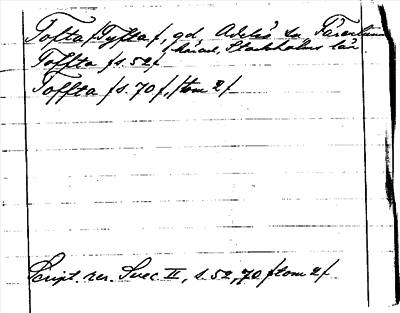 Tofta /Tyfta/, gd, Adelsö sn, Färentuna
härad, Stockholms län.
Toffta /s. 52/
Toffta /s. 70/, /tom 2/
Script. rer. Svec II, s. 52, 70 /tom 2/